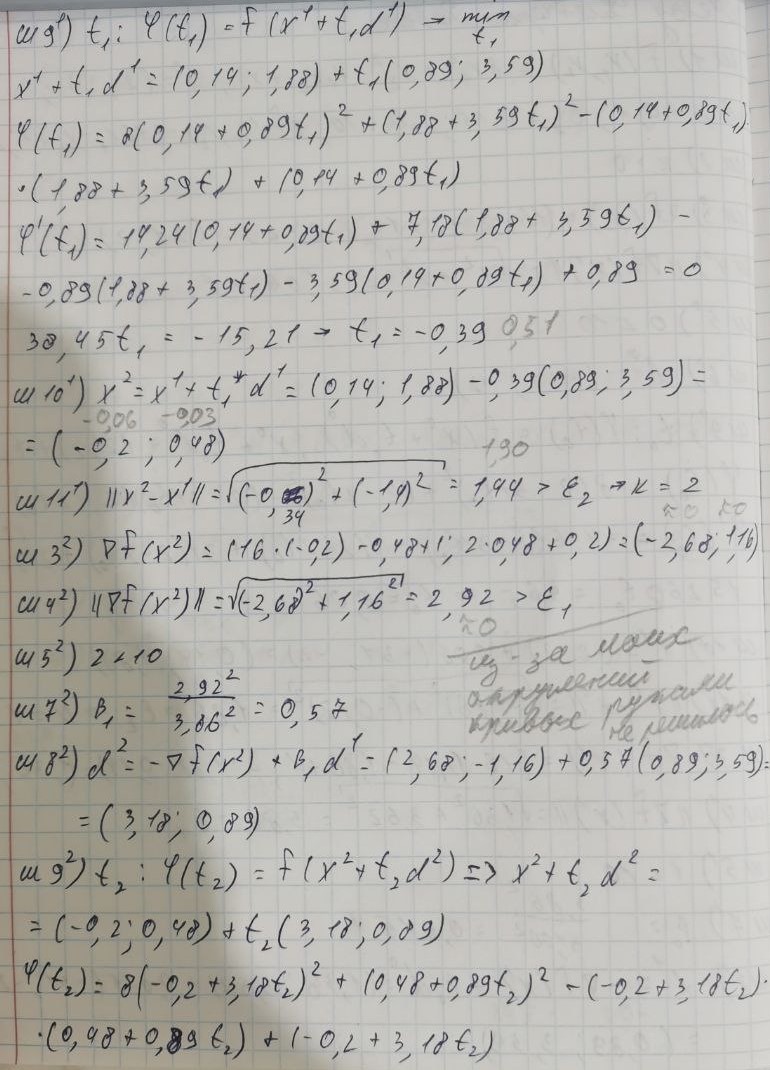 ш 9¹) t₁ : φ(t₁) = f(x¹ + t₁d¹) → min t₁
x¹ + t₁d¹ = (0,14; 1,88) + t₁(0,89; 3,59)
φ(t₁) = 8(0,14 + 0,89t₁)² + (1,88 + 3,59t₁)² - (0,14 + 0,89t₁)
·(1,88 + 3,59t₁) + (0,14 + 0,89t₁)
φ'(t₁) = 14,24(0,14 + 0,89t₁) + 7,18(1,88 + 3,59t₁) -
-0,89(1,88 + 3,59t₁) - 3,59(0,14 + 0,89t₁) + 0,89 = 0
38,45t₁ = -15,21 → t₁ = -0,39 0,51
ш 10¹) x² = x¹ + t₁* d¹ = (0,14; 1,88) - 0,39(0,89; 3,59) =
-0,06 -0,03
= (-0,2 ; 0,48)
1,90
ш 11¹) ||x² - x¹|| = √(-0,34)² + (-1,4)² = 1,44 > ε₂ → k = 2
≈0 ≈0
ш 3²) ∇f(x²) = (16·(-0,2) - 0,48 + 1; 2·0,48 + 0,2) = (-2,68; 1,16)
ш 4²) ||∇f(x²)|| = √(-2,68)² + 1,16² = 2,92 > ε₁
≈0
ш 5²) 2 < 10
из-за моих
округлений
кривых руками
не решилось
ш 7²) B₁ = 2,92² / 3,86² = 0,57
ш 8²) d² = -∇f(x²) + B₁d¹ = (2,68; -1,16) + 0,57(0,89; 3,59) =
= (3,18; 0,89)
ш 9²) t₂ : φ(t₂) = f(x² + t₂d²) => x² + t₂d² =
= (-0,2; 0,48) + t₂(3,18; 0,89)
φ(t₂) = 8(-0,2 + 3,18t₂)² + (0,48 + 0,89t₂)² - (-0,2 + 3,18t₂)·
·(0,48 + 0,89t₂) + (-0,2 + 3,18t₂)